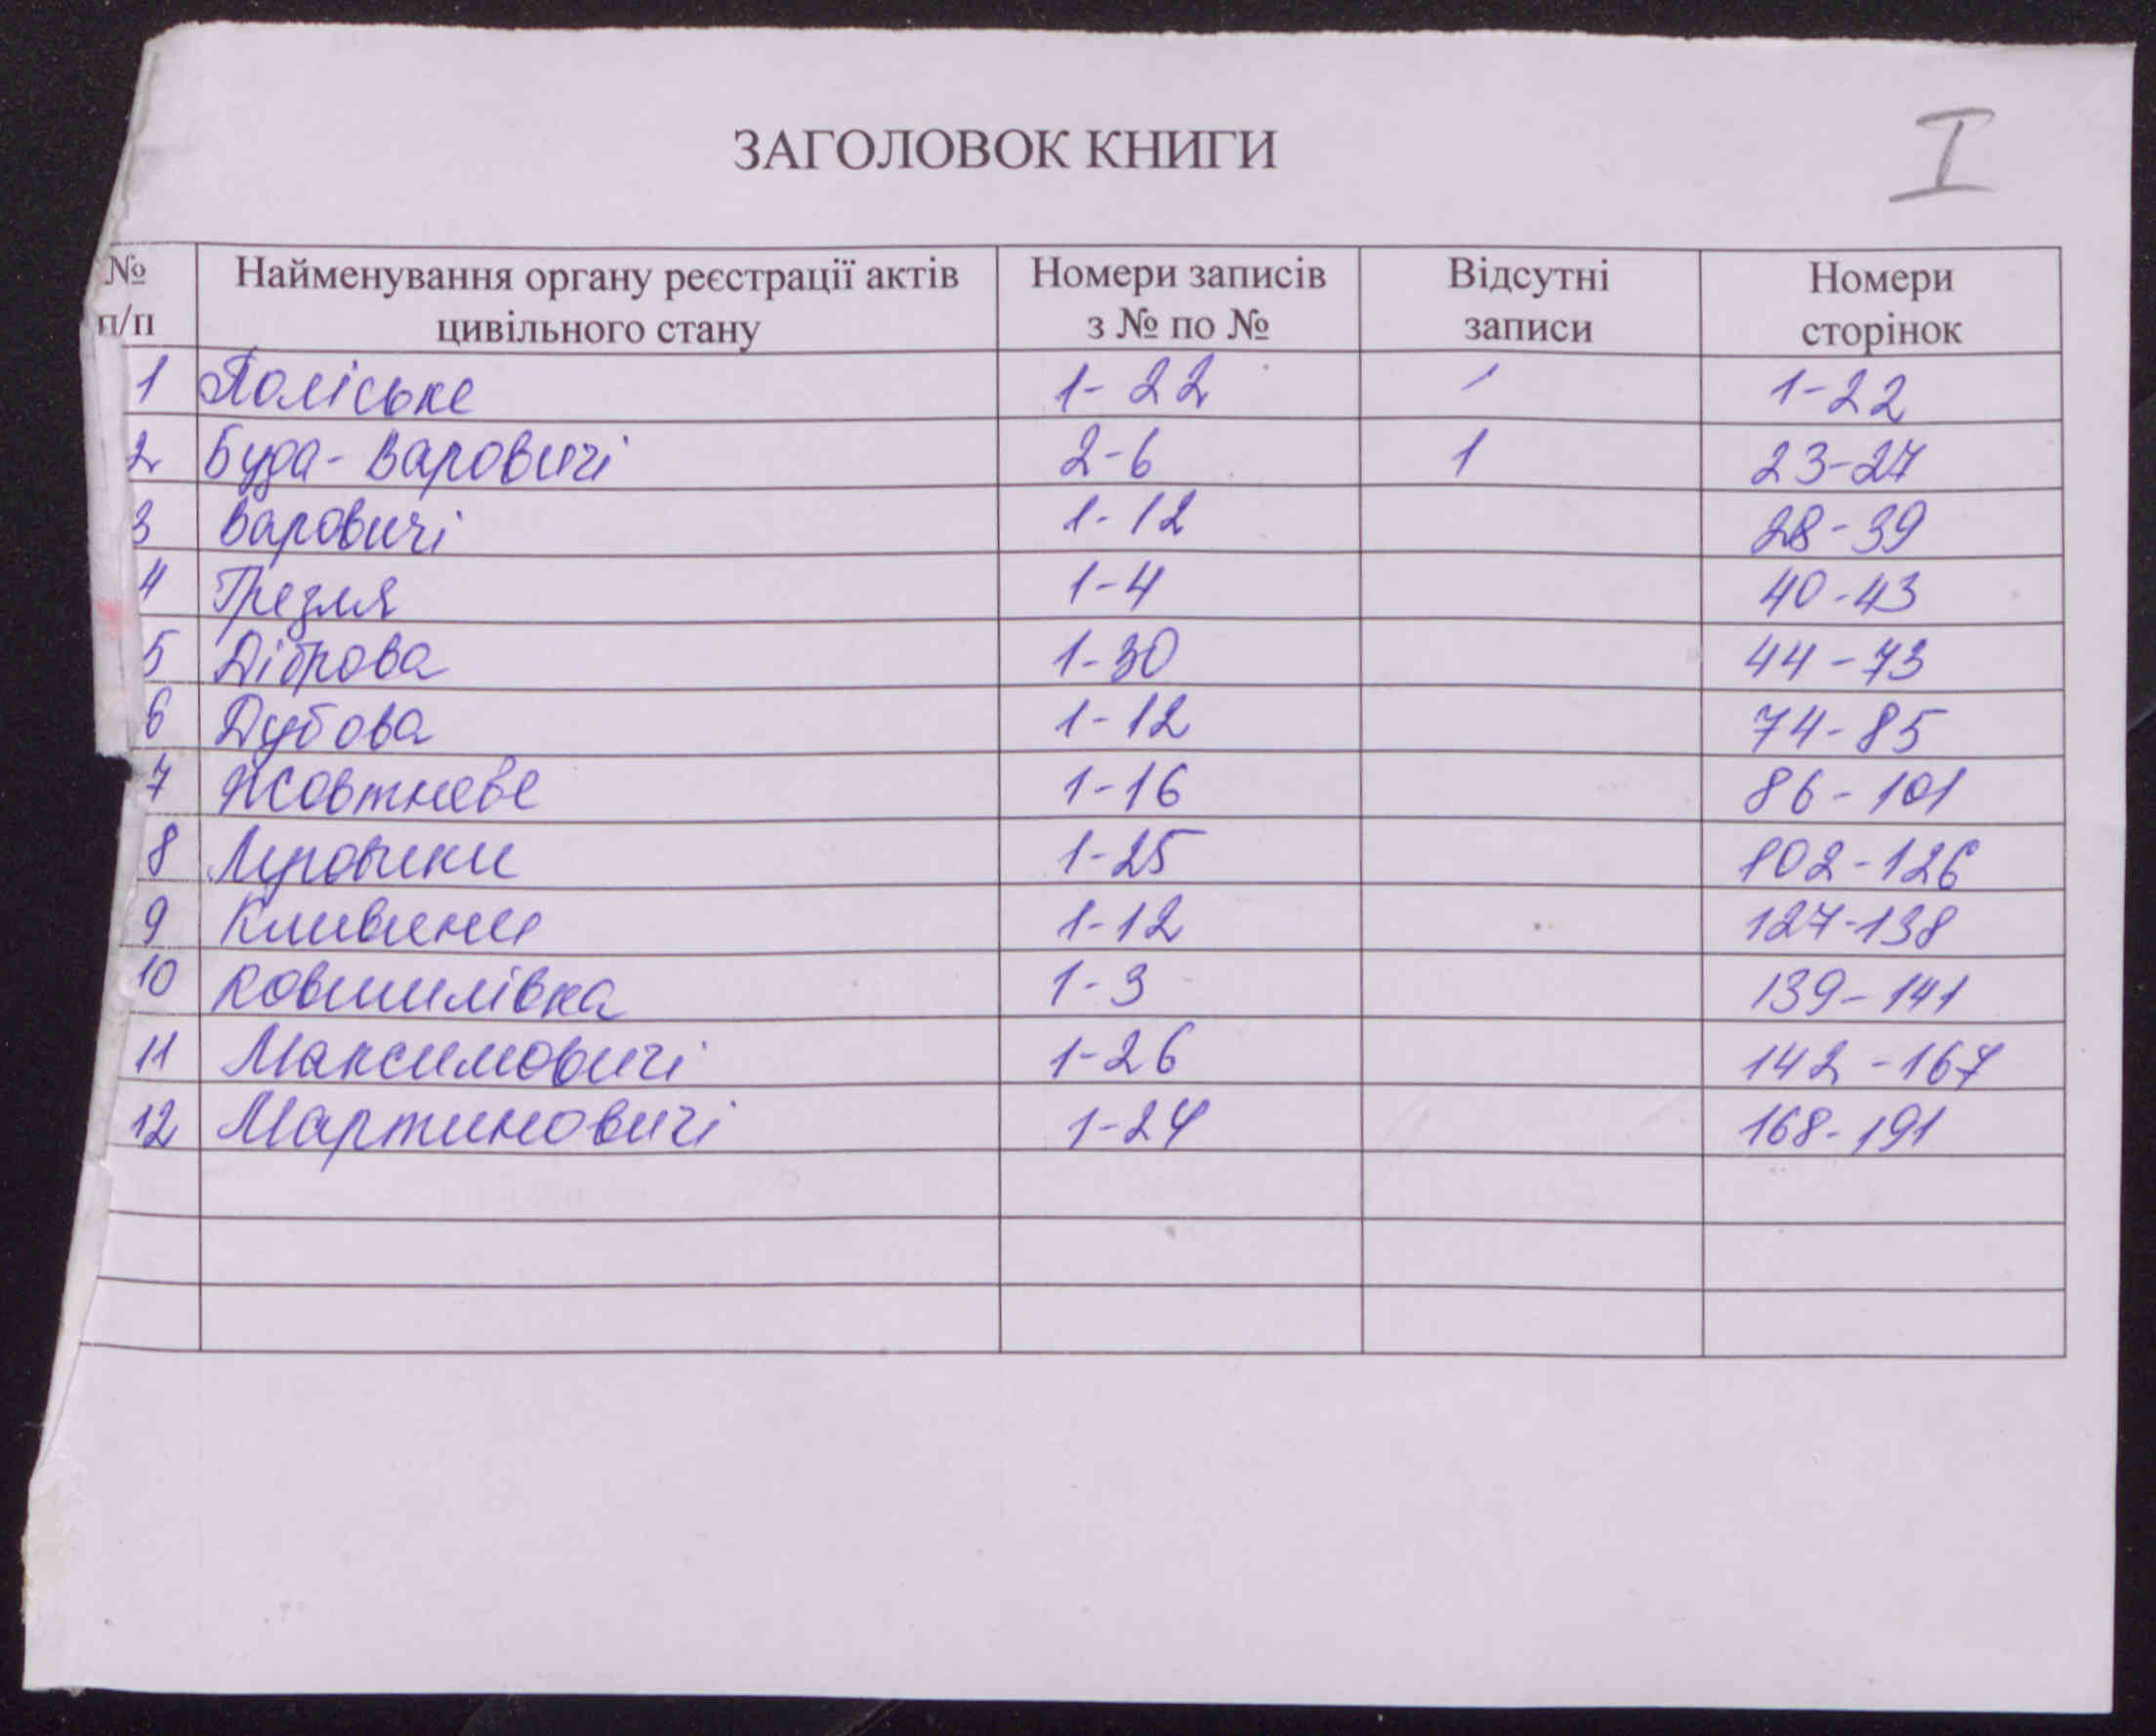 ЗАГОЛОВОК КНИГИ
I
№ п/п Найменування органу реєстрації актів цивільного стану Номери записів з № по № Відсутні записи Номери сторінок
1 Поліське 1-22 / 1-22
2 Буда-Варовичі 2-6 1 23-27
3 Варовичі 1-12 28-39
4 Грезля 1-4 40-43
5 Діброва 1-30 44-73
6 Дубова 1-12 74-85
7 Жовтневе 1-16 86-101
8 1-25 102-126
9 Кливини 1-12 127-138
10 Ковшилівка 1-3 139-141
11 Максимовичі 1-26 142-167
12 Мартиновичі 1-24 168-191